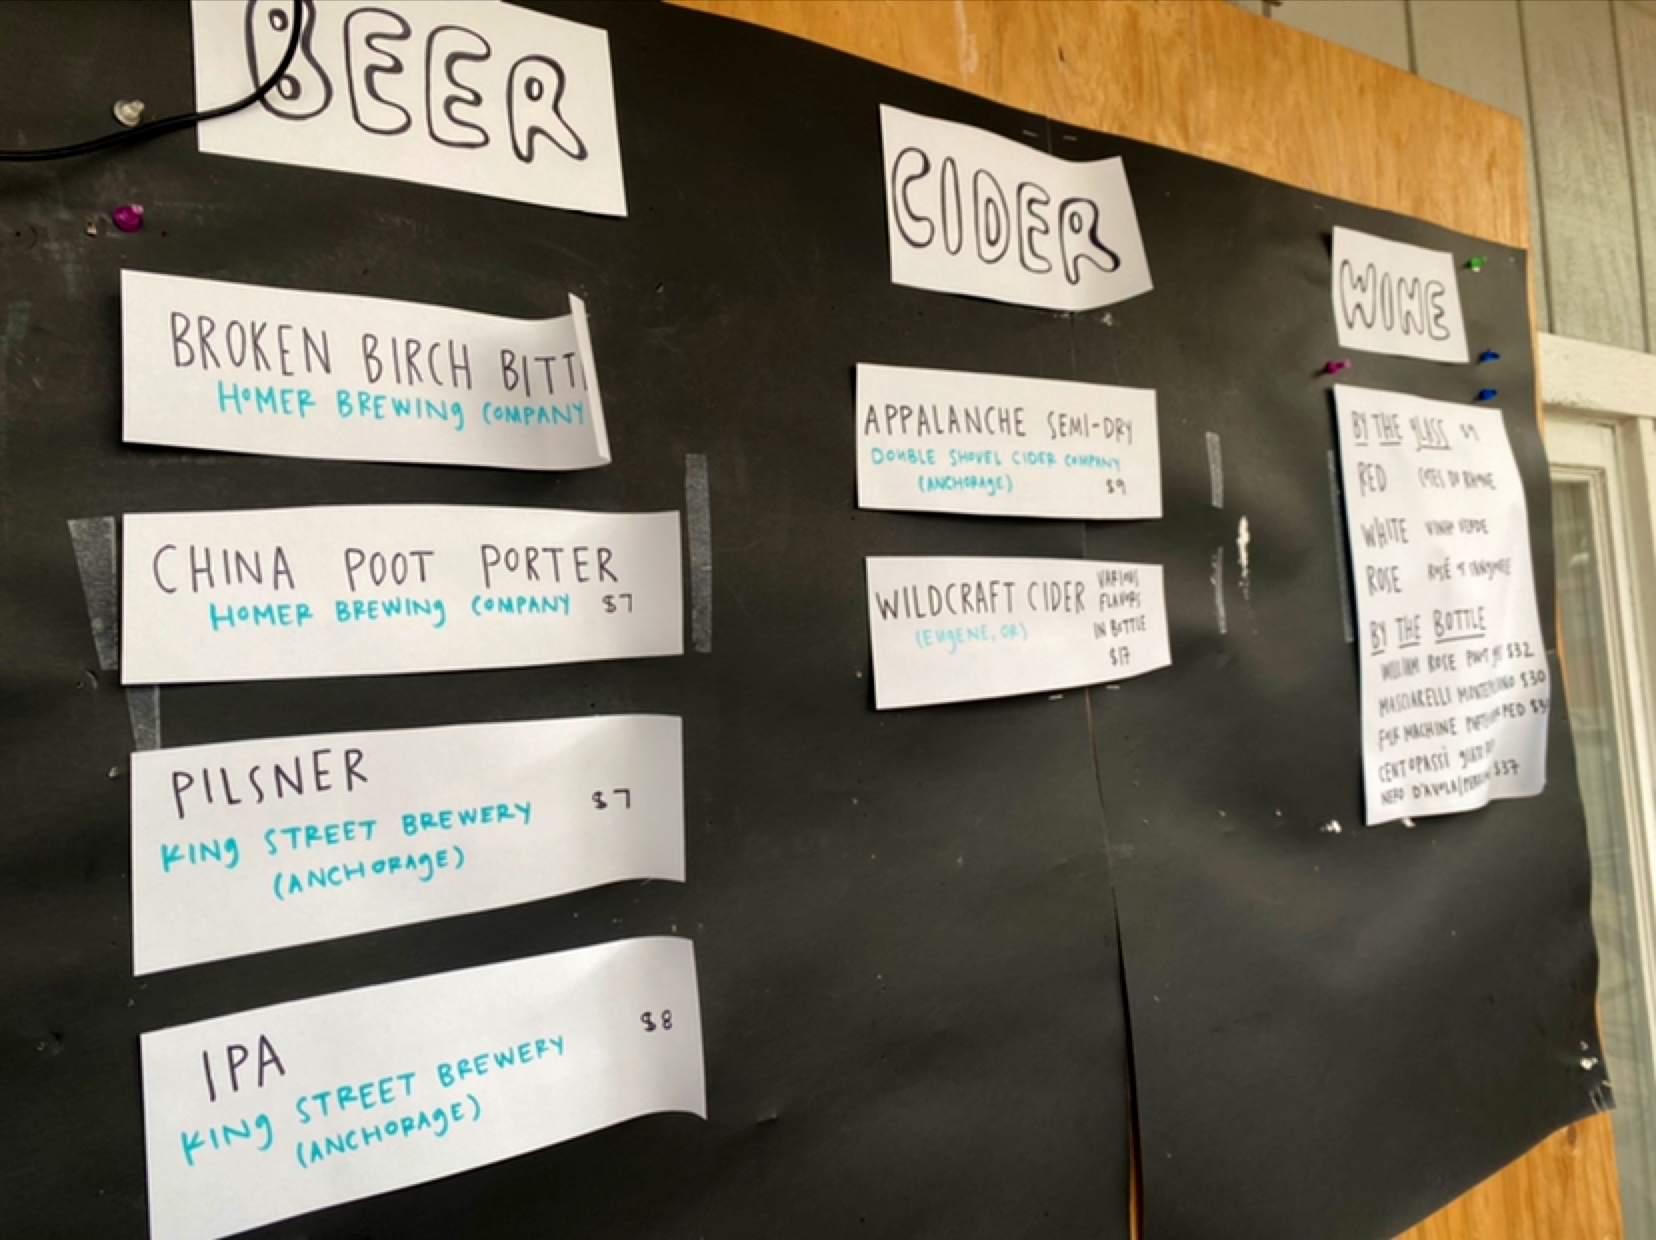 BEER
BROKEN BIRCH BITT
HOMER BREWING COMPANY
CHINA POOT PORTER
HOMER BREWING COMPANY $7
PILSNER
$7
KING STREET BREWERY
(ANCHORAGE)
IPA
$8
KING STREET BREWERY
(ANCHORAGE)
CIDER
APPALANCHE SEMI-DRY
DOUBLE SHOVEL CIDER COMPANY
(ANCHORAGE) $9
WILDCRAFT CIDER
(EUGENE, OR)
VARIOUS
FLAVORS
IN BOTTLE
$17
WINE
BY THE GLASS $9
RED
WHITE VINHO VERDE
ROSE ROSÉ
BY THE BOTTLE
ROSE $32
MASCIARELLI $30
MACHINE RED
CENTOPASSI
NERO D'AVOLA $37